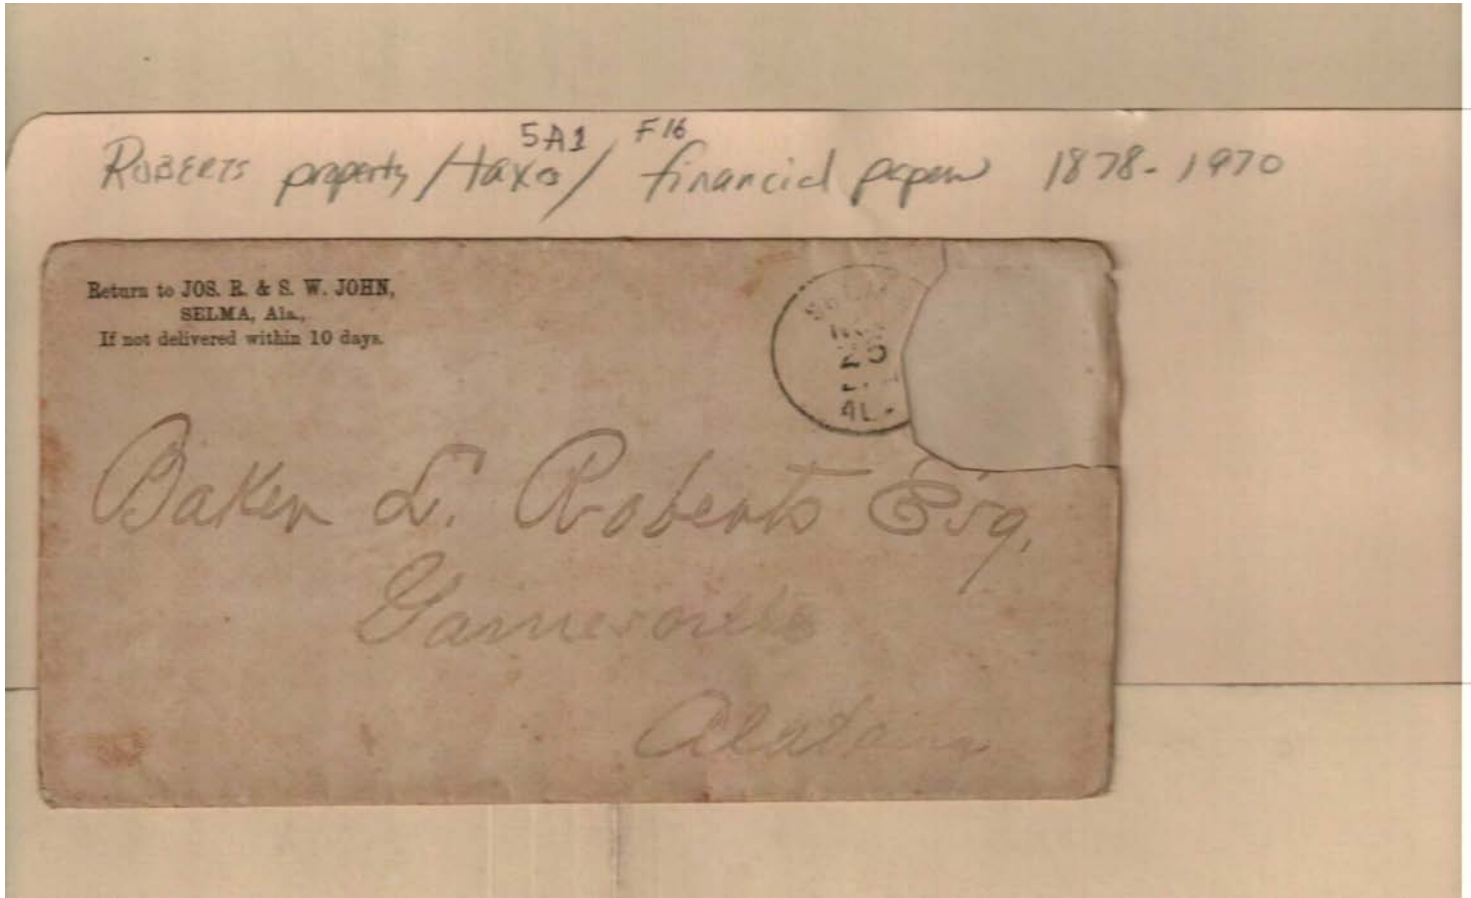 5A1 F16
ROBERTS property/taxes/financial papers 1878-1970
Return to JOS. R. & S. W. JOHN,
SELMA, Ala.,
If not delivered within 10 days.
25
AL.
Baker L. Roberts Esq,
Alabama